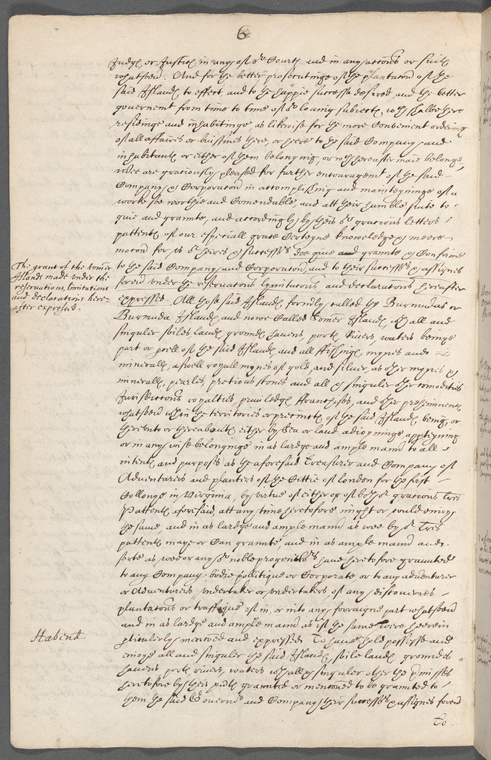 6
Judge or Justice in any of oʳ Courtes and in any accons or suite
whatsoever. And for the better prosecutinge of the plantacon of the
said Islandes to effect, and to the happie successe desired and the better
government from time to time of oʳ loving subiectes, wᶜʰ shalbe there
residinge and inhabitinge as likewise for the more Convenient ordering
of all affaires or bussines there, or here to the said Company and
inhabitants or either of them belonging, or wᶜʰ hereafter maie belonge
wee are gratiously pleased for further encouragemt of the said
Company & Corporacon in accomplishing and mainteyninge of a
worke soe worthie and Comendable, and att their humble suite to
giue and graunte, and accordingly by theis oʳ gratious letters
pattents of our especiall grace Certeyne knowledge & meere
mocon for vs oʳ heires & successors Doe giue and graunte & Confirme
The grant of the Somer
Islands made vnder the
reservations, limitations
and declarations here-
after expressed.
to the said Company and Corporacon, and to their successors & assignes
forever vnder the reservations lymitations, and declarations hereafter
expressed. All those said Islandes formerly called the Burmudas or
Burmuda Islandes and nowe Called Somer Islandes, & all and
singuler soiles landes groundes havens portes Rivers, waters beinge
part or parcell of the said Islandes and all ffishinges mynes and
mineralls, aswell royall mynes of gold, and silver, as other mynes &
mineralls, pearles, pretious stones and all & singuler other comodities
Jurisdictions royalties, priviledges ffranchises, and other preheminences
whatsoever wᵗʰin the territories or precinctes of the said Islandes being, or
thereinto or thereaboutes either by Sea or land adioyninge apperteyning
or in any wise belonginge in as lardge and ample manner to all
intentes and purposes as the aforesaid Treasurer and Company of
Adventurers and planters of the Cittie of London for the first
Collonye in Virginia, by virtue of either of both oʳ gratious Lres
Pattents aforesaid att any time heretofore might or could enioy
the same, and in as lardge and ample manner as wee by oʳ Lres
pattents maye or Can graunte, and in as ample manner and
sorte as wee or any oʳ noble progenitors haue heretofore graunted
to any Company bodie pollitique or Corporate or to any adventurer
or Adventurers, vndertaker or vndertakers of any discoveries
plantations or traffique of in, or into any forraigne parts whatsoever
and in as lardge and ample manner as if the same were herein
Habend
perticulerly mentioned and expressed To haue hold possesse and
enioye all and singuler the said Islandes, soiles landes groundes
havens portes rivers, waters wᵗʰ all & singuler other the premisses
heretofore by theis presents graunted or mentioned to be graunted to
them the said Governor and Company their successors & assignes forever
To